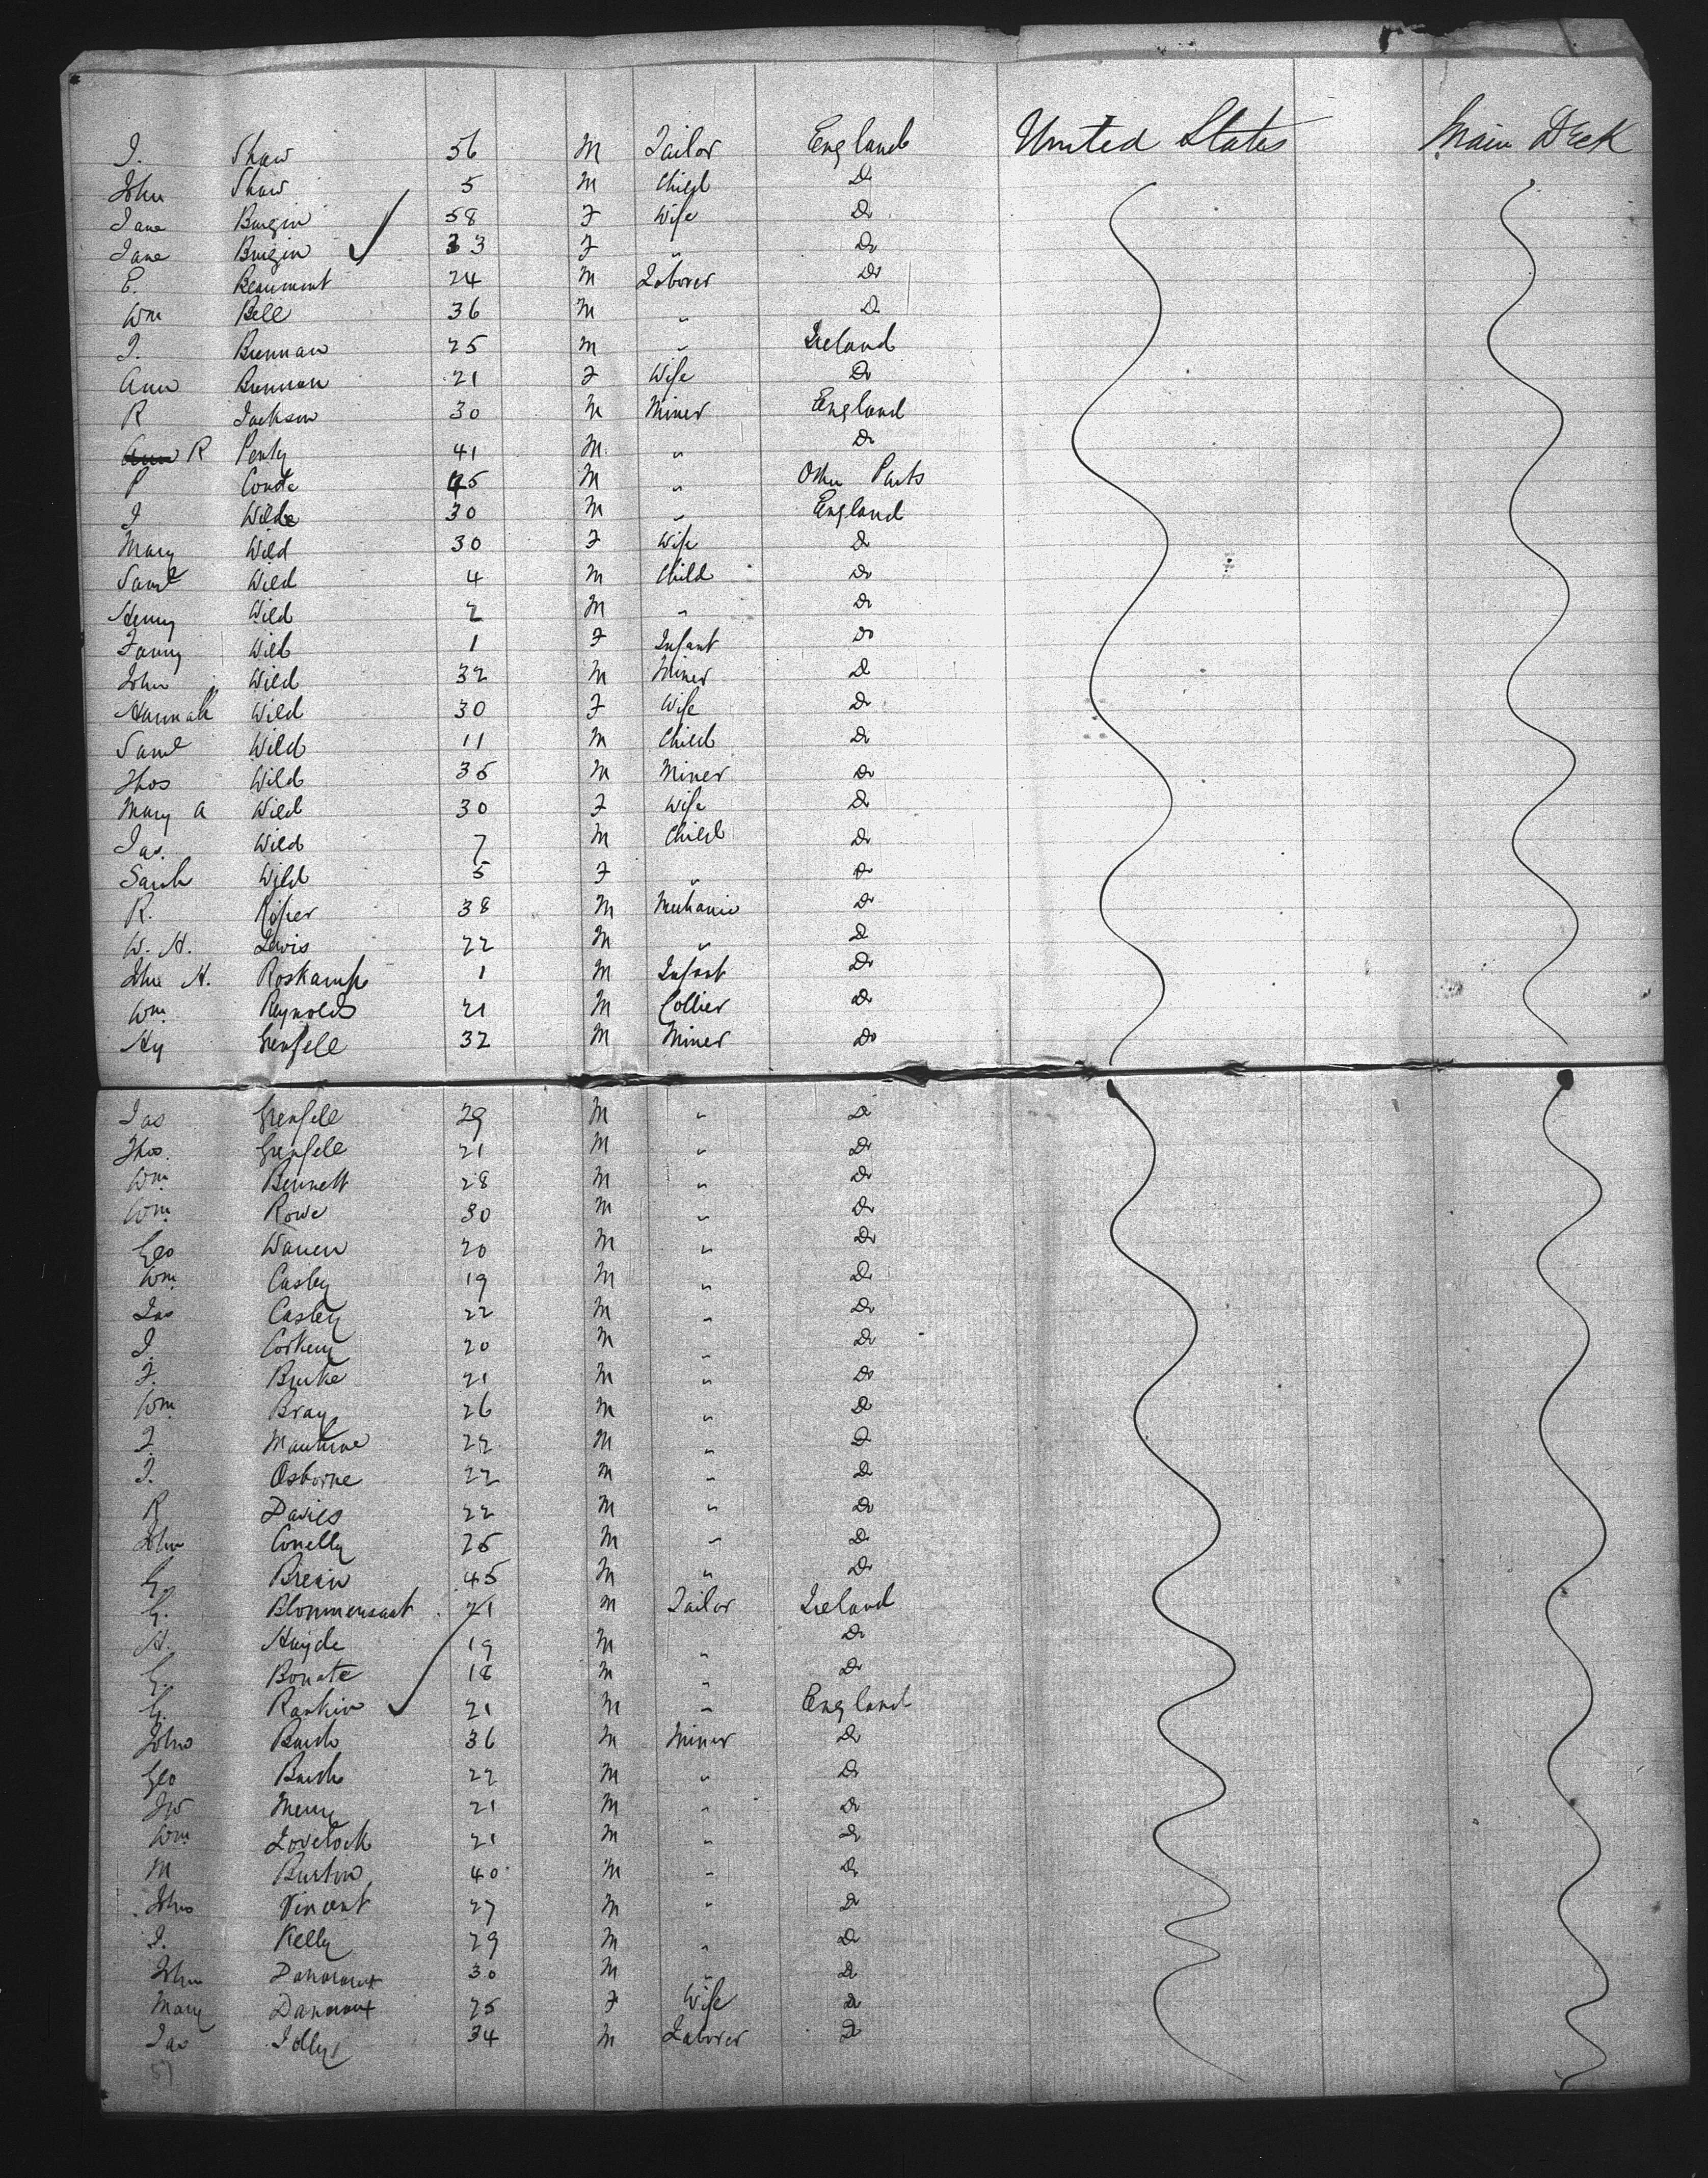 J. Shaw 56 M Tailor England United States Main Deck
John Shaw 5 M Child Do
Jane Burgin 58 F Wife Do
Jane Burgin 33 F " Do
E. Beaumont 24 M Laborer Do
Wm Bell 36 M " Do
J. Brennan 25 M " Ireland
Ann Brennan 21 F Wife Do
R Jackson 30 M Miner England
R 41 M " Do
P 45 M " Other Parts
J Wilde 30 M " England
Mary Wild 30 F Wife Do
Saml Wild 4 M Child Do
Henry Wild 2 M " Do
Fanny Wild 1 F Infant Do
John Wild 32 M Miner Do
Hannah Wild 30 F Wife Do
Saml Wild 11 M Child Do
Thos Wild 35 M Miner Do
Mary A Wild 30 F Wife Do
Jas. Wild 7 M Child Do
Sarah Wild 5 F " Do
R. Roper 38 M Mechanic Do
W. H. Lewis 22 M " Do
John H. Roskamp 1 M Infant Do
Wm. Reynolds 21 M Collier Do
Hy Grenfell 32 M Miner Do
Jas Grenfell 29 M " Do
Thos. Grenfell 21 M " Do
Wm. Bennett 28 M " Do
Wm. Rowe 30 M " Do
Geo Warren 20 M " Do
Wm. Casley 19 M " Do
Jas Casley 22 M " Do
J. Corkery 20 M " Do
F. Burke 21 M " Do
Wm. Bray 26 M " Do
J. 22 M " Do
J. Osborne 22 M " Do
R Davies 22 M " Do
John Conelly 25 M " Do
G. 45 M " Do
G. 21 M Tailor Ireland
H. 19 M " Do
G. Bonate 18 M " Do
G. Rankin 21 M " England
John Bush 36 M Miner Do
Geo Bush 22 M " Do
Jno 21 M " Do
Wm. Lovelock 21 M " Do
M Burton 40 M " Do
Jno Vincent 27 M " Do
J. Kelly 29 M " Do
John 30 M " Do
Mary 25 F Wife Do
Jas Jolly 34 M Laborer Do
57